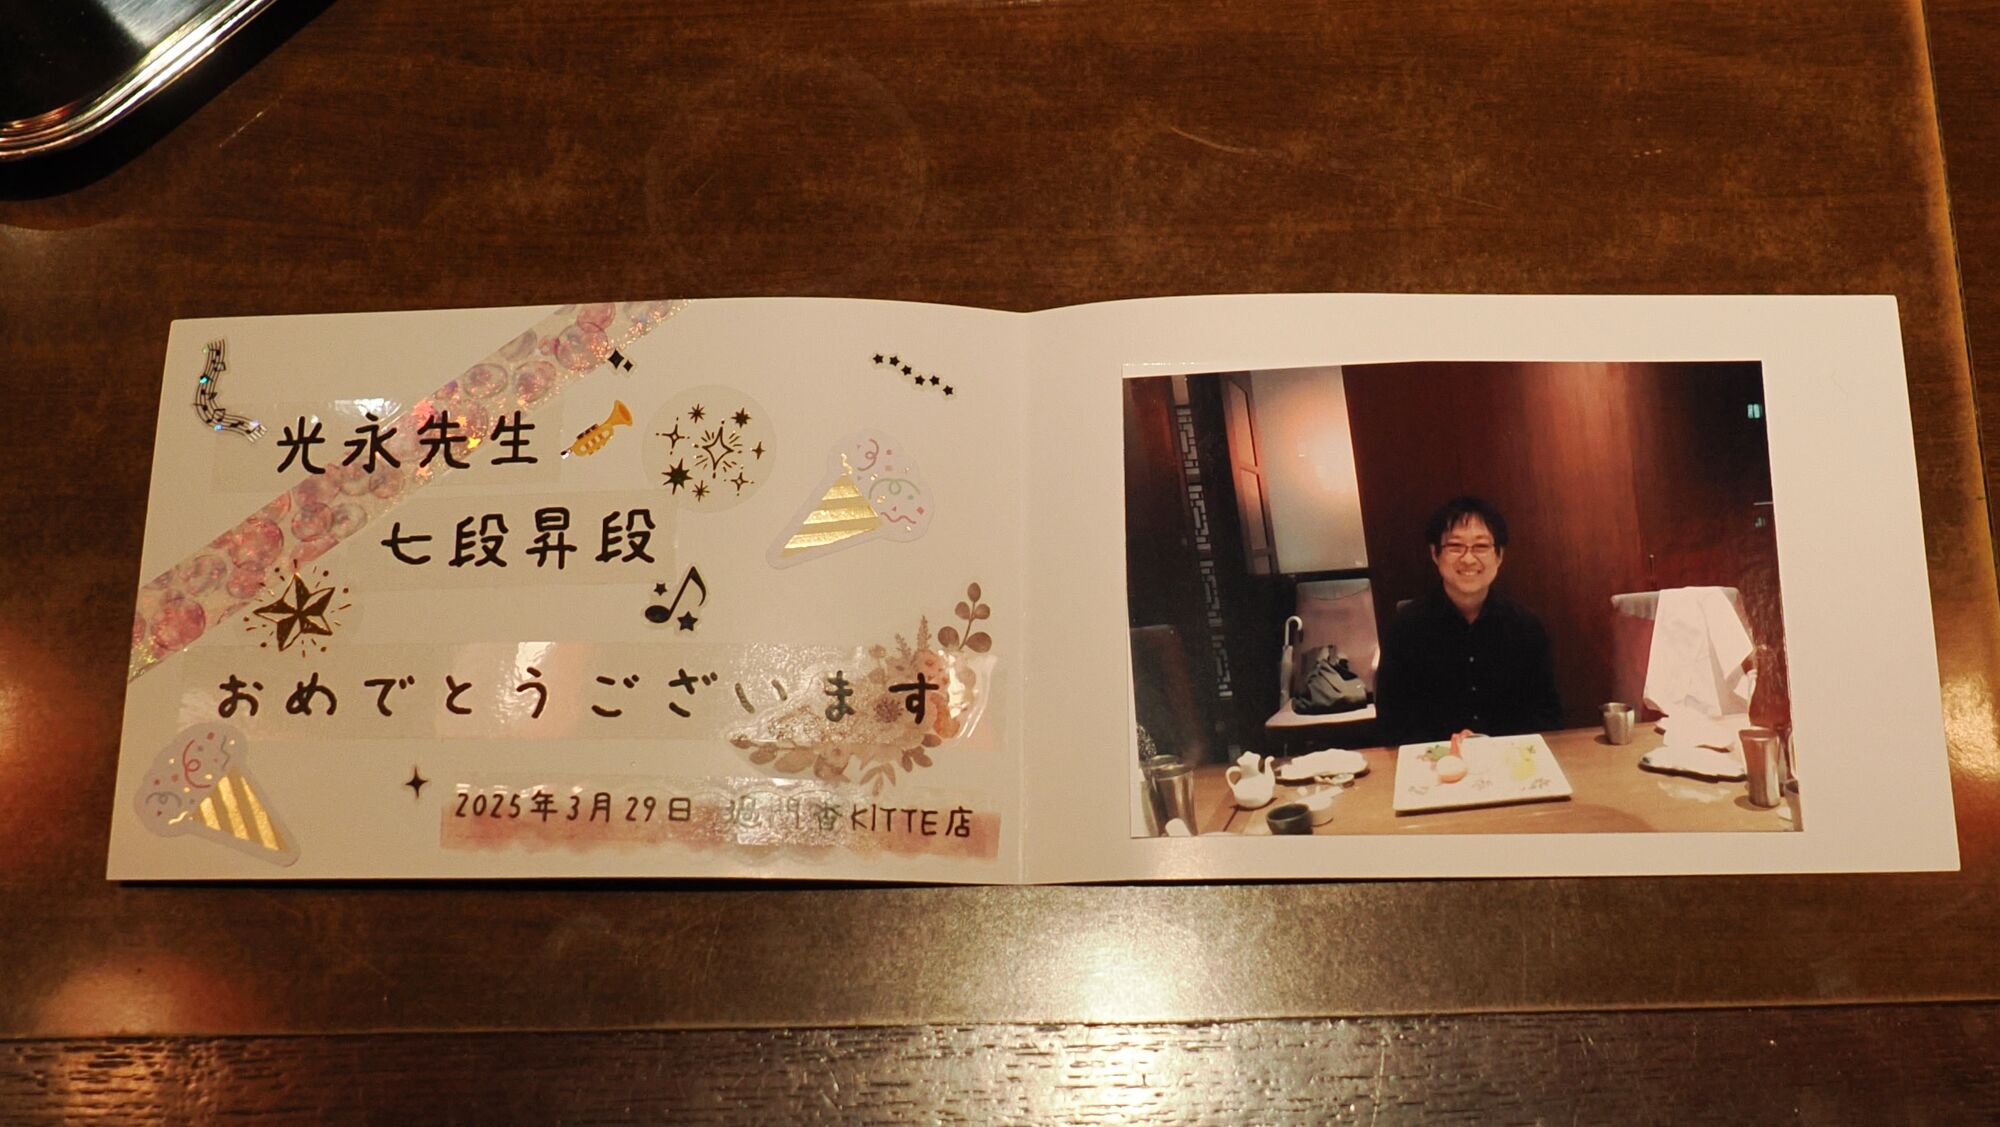 光永先生
七段昇段
おめでとうございます
2025年3月29日 過門香KITTE店